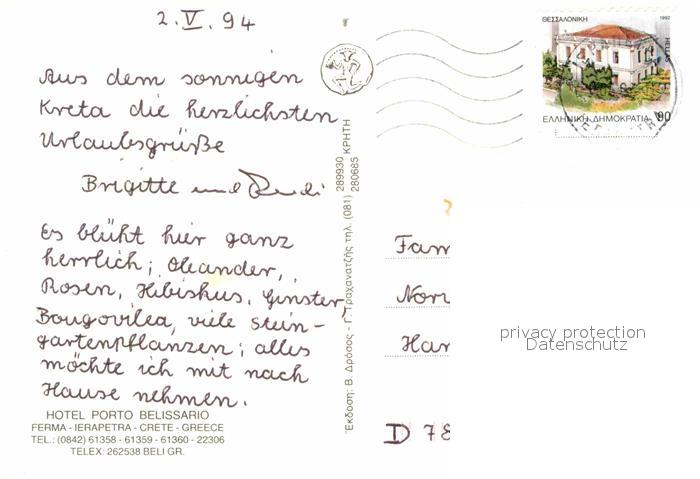 2.V.94
Aus dem sonnigen
Kreta die herzlichsten
Urlaubsgrüße
Brigitte und Rudi
Es blüht hier ganz
herrlich; Oleander,
Rosen, Hibiskus, Ginster,
Bougovilea, viele stein-
gartenpflanzen; alles
möchte ich mit nach
Hause nehmen.
HOTEL PORTO BELISSARIO
FERMA - IERAPETRA - CRETE - GREECE
TEL.: (0842) 61358 - 61359 - 61360 - 22306
TELEX: 262538 BELI GR.
Έκδοση: Β. Δρόσος - Γ. Τραχανατζής τηλ. (081) 289930 ΚΡΗΤΗ
280685
ΘΕΣΣΑΛΟΝΙΚΗ 1992
HELLAS
ΕΛΛΗΝΙΚΗ ΔΗΜΟΚΡΑΤΙΑ 90
Fam
Nor
Har
D 78
privacy protection
Datenschutz